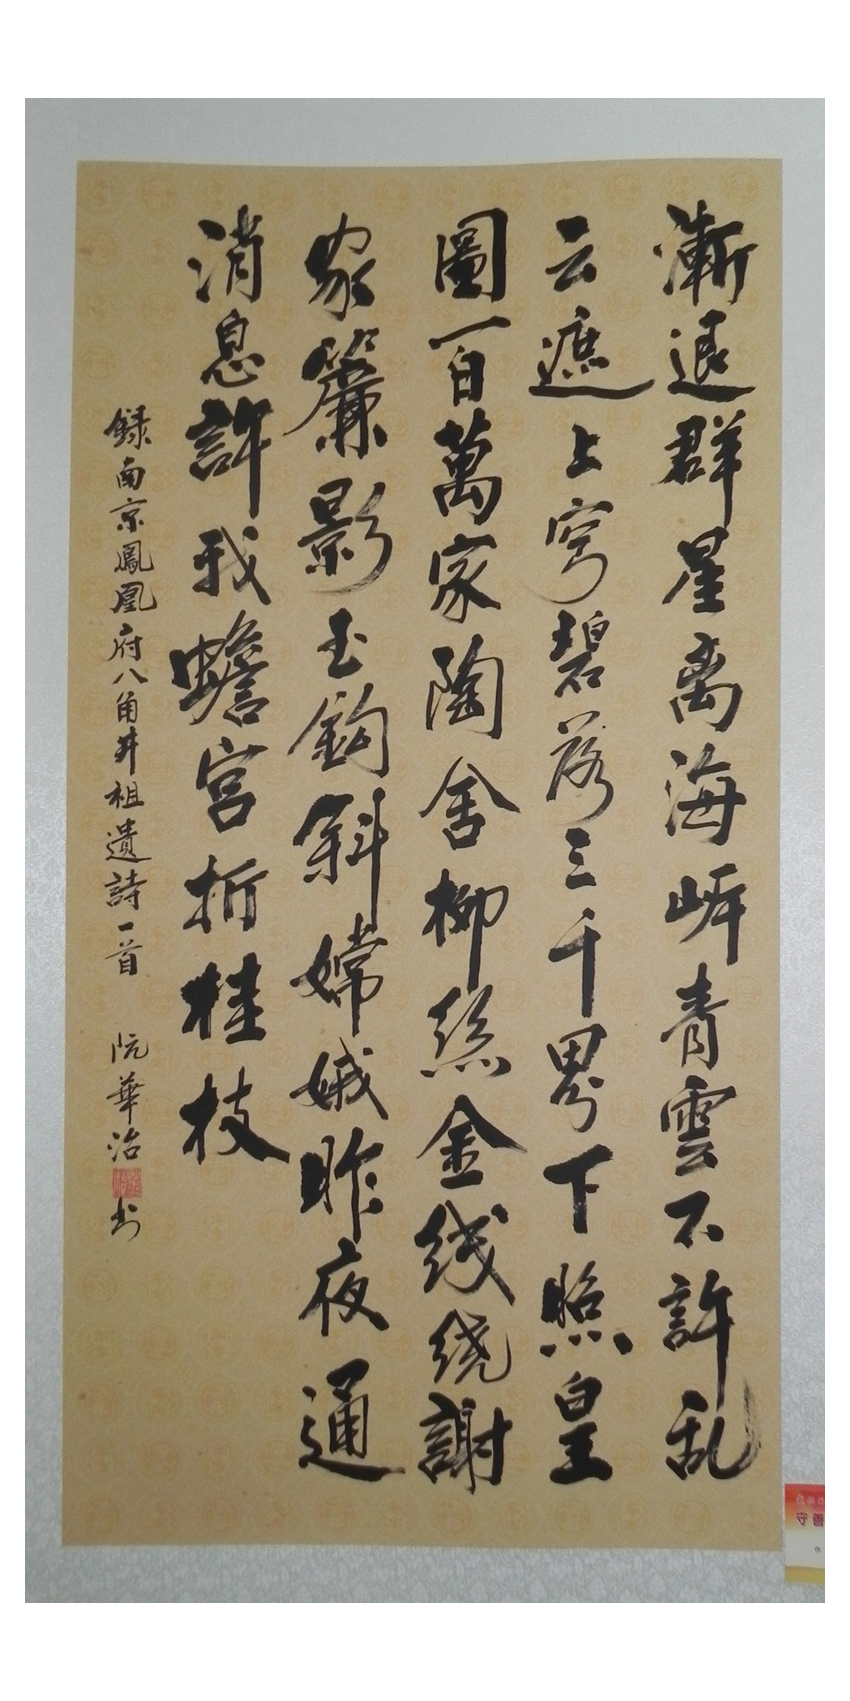 漸退群星离海㟁青雲不許乱
云遮上穹碧落三千界下照皇
圖一百萬家陶舍柳絲金线绕謝
家簾影玉鈎斜嫦娥昨夜通
消息許我蟾宮折桂枝
録南京鳳凰府八角井祖遺詩一首 阮華治书
守善